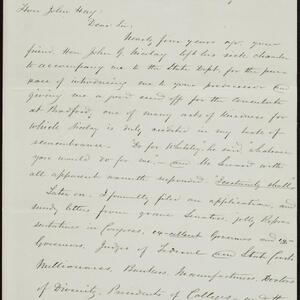 Hon. John Hay:
Dear Sir:
Nearly four years ago, your
friend, Hon. John G. Nicolay left his sick chamber
to accompany me to the State Dept. for the pur-
pose of introducing me to your predecessor and
giving me a good send off for the Consulate
at Bradford, one of many acts of kindness for
which Nicolay is duly credited in my book of
remembrance. "Do for Whiteley", he said "whatever
you would do for me" — and Mr. Seward with
all apparent warmth responded "I certainly shall"
Later on, I formally filed an application, and
sundry letters from grave Senators, jolly Repre-
sentatives in Congress, ex-collect Governors and ex-
Governors, Judges of Federal and State Courts
Millionaires, Bankers, Manufacturers, Doctors
of Divinity, Presidents of Colleges